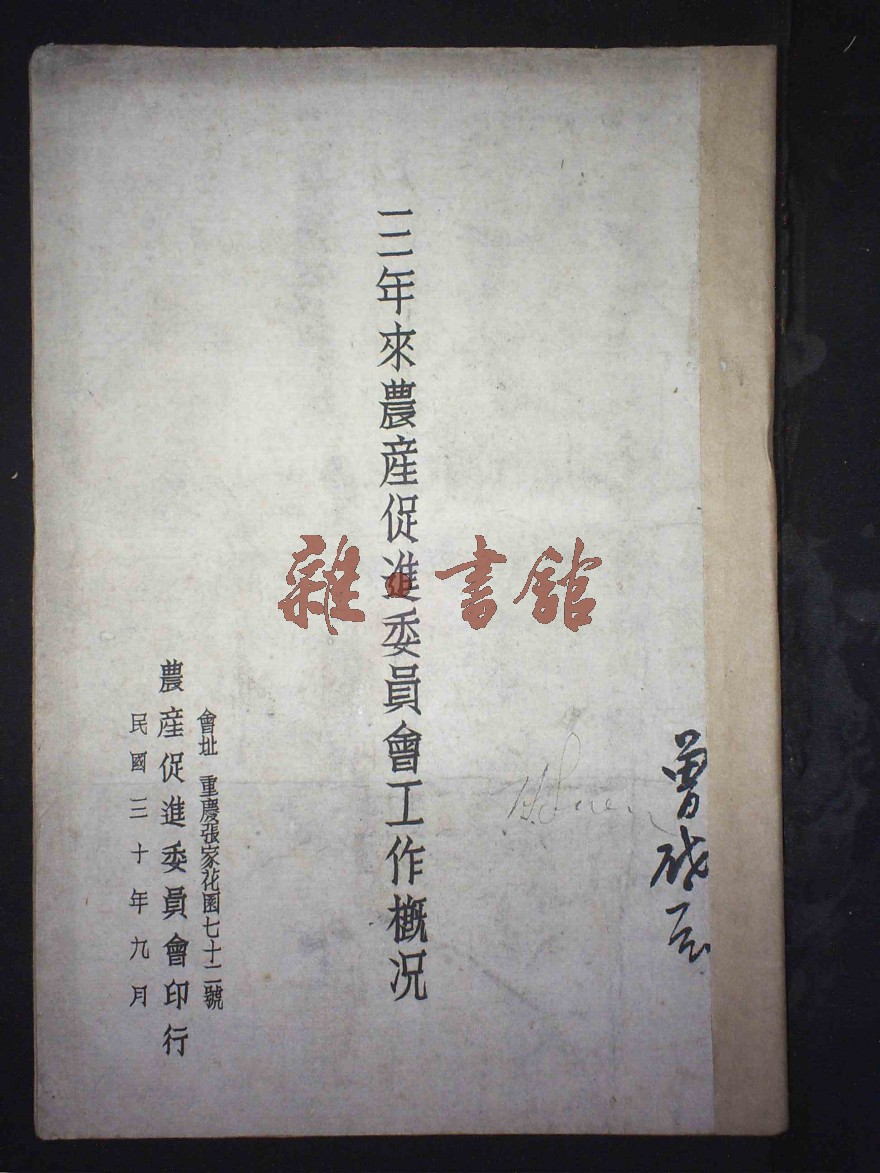 曾
三年來農産促進委員會工作概況
雜書館
會址 重慶張家花園七十二號
農産促進委員會印行
民國三十年九月